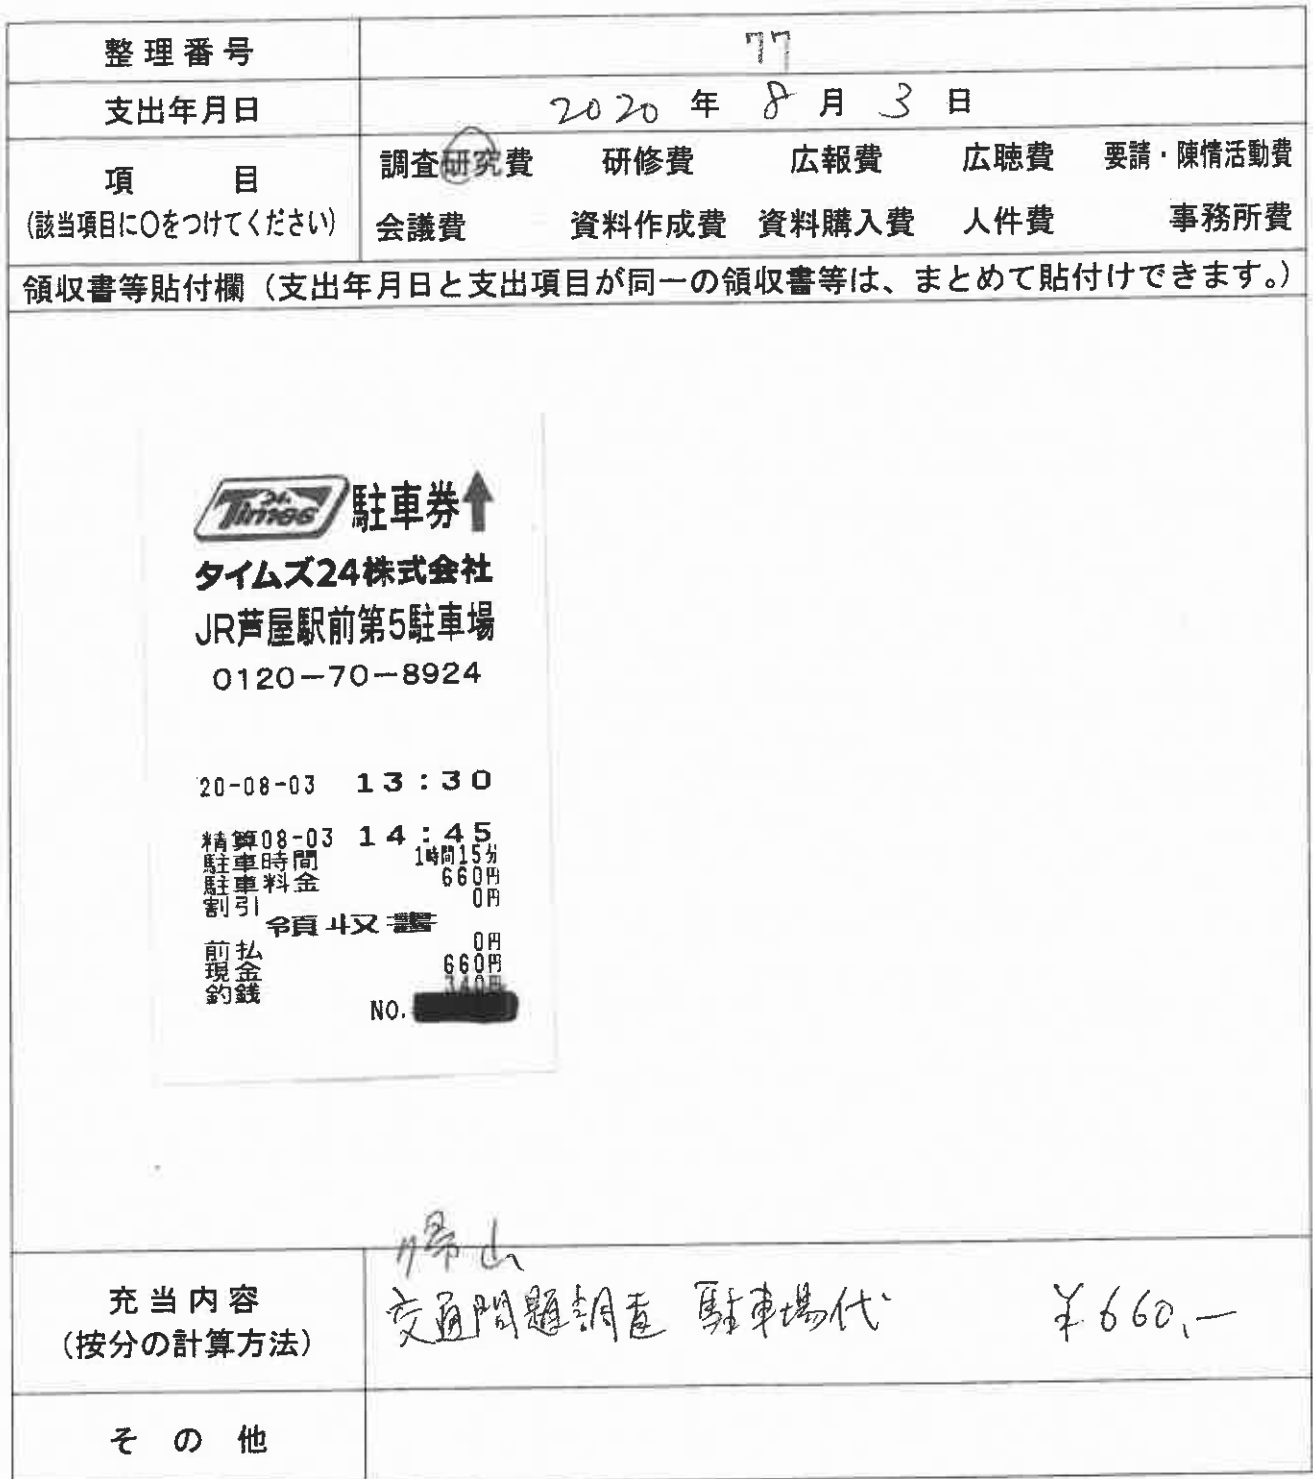 整理番号 77
支出年月日 2020 年 8 月 3 日
項 目
(該当項目に○をつけてください)
調査研究費 研修費 広報費 広聴費 要請・陳情活動費
会議費 資料作成費 資料購入費 人件費 事務所費
領収書等貼付欄(支出年月日と支出項目が同一の領収書等は、まとめて貼付けできます。)
Times 24h 駐車券↑
タイムズ24株式会社
JR芦屋駅前第5駐車場
0120-70-8924
20-08-03 13:30
精算08-03 14:45
駐車時間 1時間15分
駐車料金 660円
割引 0円
領収書
前払 0円
現金 660円
釣銭 340円
NO.
帰山
充当内容
(按分の計算方法)
交通問題調査 駐車場代 ¥660,-
その他